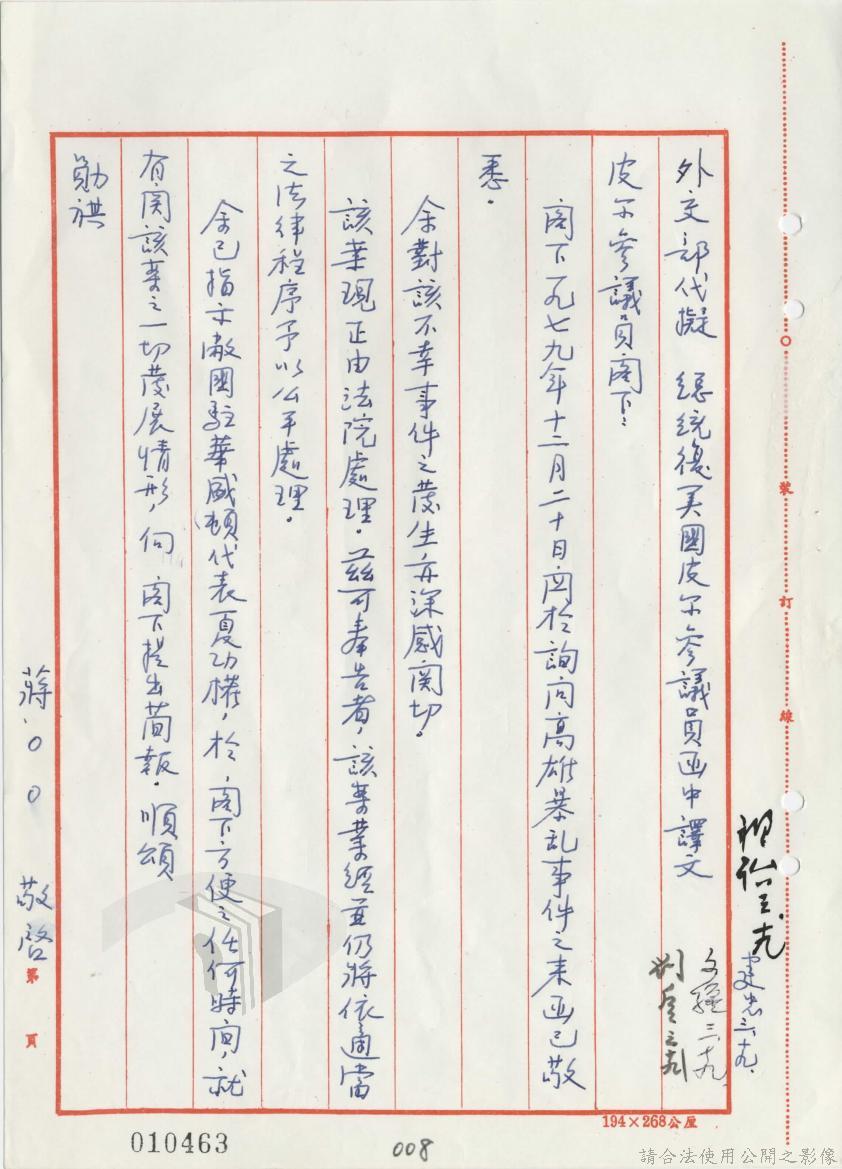 外交部代擬　總統復美國皮尔參議員函中譯文
皮尔參議員閣下：
閣下一九七九年十二月二十日函於詢问高雄暴乱事件之来函已敬
悉。
余對該不幸事件之發生亦深感関切。
該案現正由法院處理。茲可奉告者，該案業經並仍將依適當
之法律程序予以公平處理。
余已指示敝國駐華盛頓代表夏功權，於　閣下方便之任何時间，就
有関該案之一切發展情形，向　閣下提出简報。順頌
勛祺
蔣〇〇　敬啓
第　頁
裝
訂
線
194×268公厘
010463
008
請合法使用公開之影像